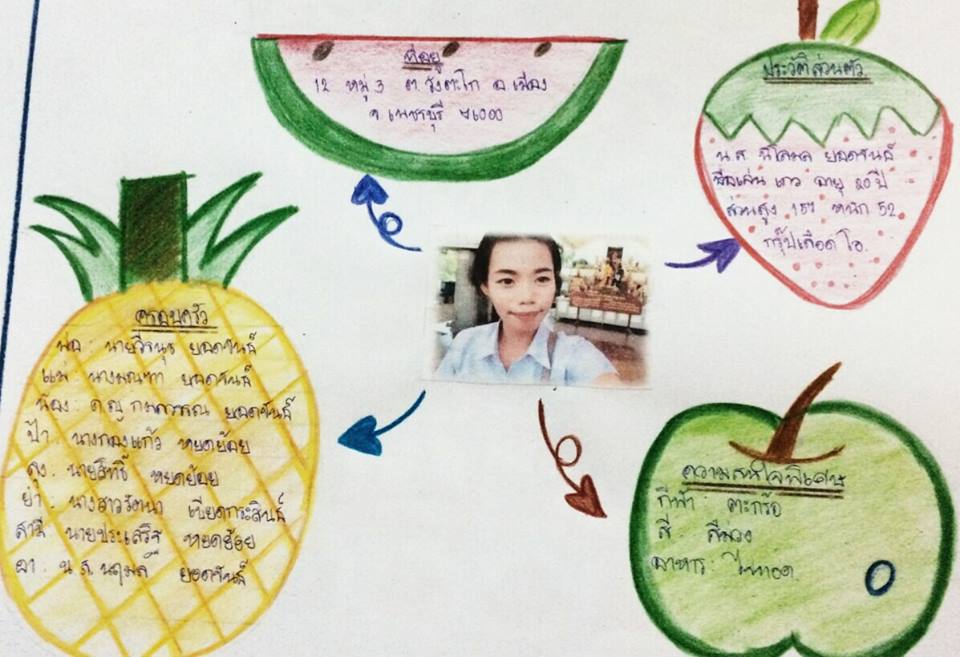 ที่อยู่
12 หมู่ 3 ต.วังตะโก อ.เมือง
จ.เพชรบุรี 76000
ประวัติส่วนตัว
น.ส. นิโลมล ยอดขันธ์
ชื่อเล่น เกว อายุ 20 ปี
ส่วนสูง 157 หนัก 52
กรุ๊ปเลือด โอ.
ครอบครัว
พ่อ : นายวีรนุช ยอดขันธ์
แม่ : นางมณฑา ยอดขันธ์
น้อง : ด.ญ. กมลวรรณ ยอดขันธ์
ป้า : นางกองแก้ว หยดย้อย
ลุง : นายสิทธิ์ หยดย้อย
ย่า : นางสาวรัตนา เบียดกระสินธุ์
สามี นายประเสริฐ หยดย้อย
อา : น.ส. นฤมล ยอดขันธ์
ความสนใจพิเศษ
กีฬา : ตะกร้อ
สี : สีม่วง
อาหาร : ไข่ทอด.